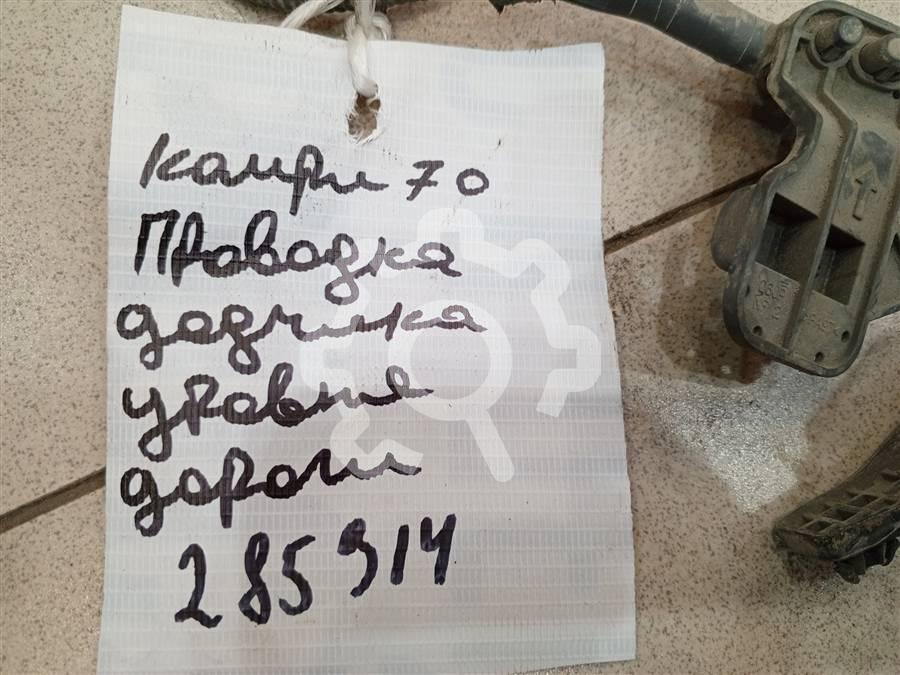 Камри 70
Проводка
дадчика
уравне
дороги
285914